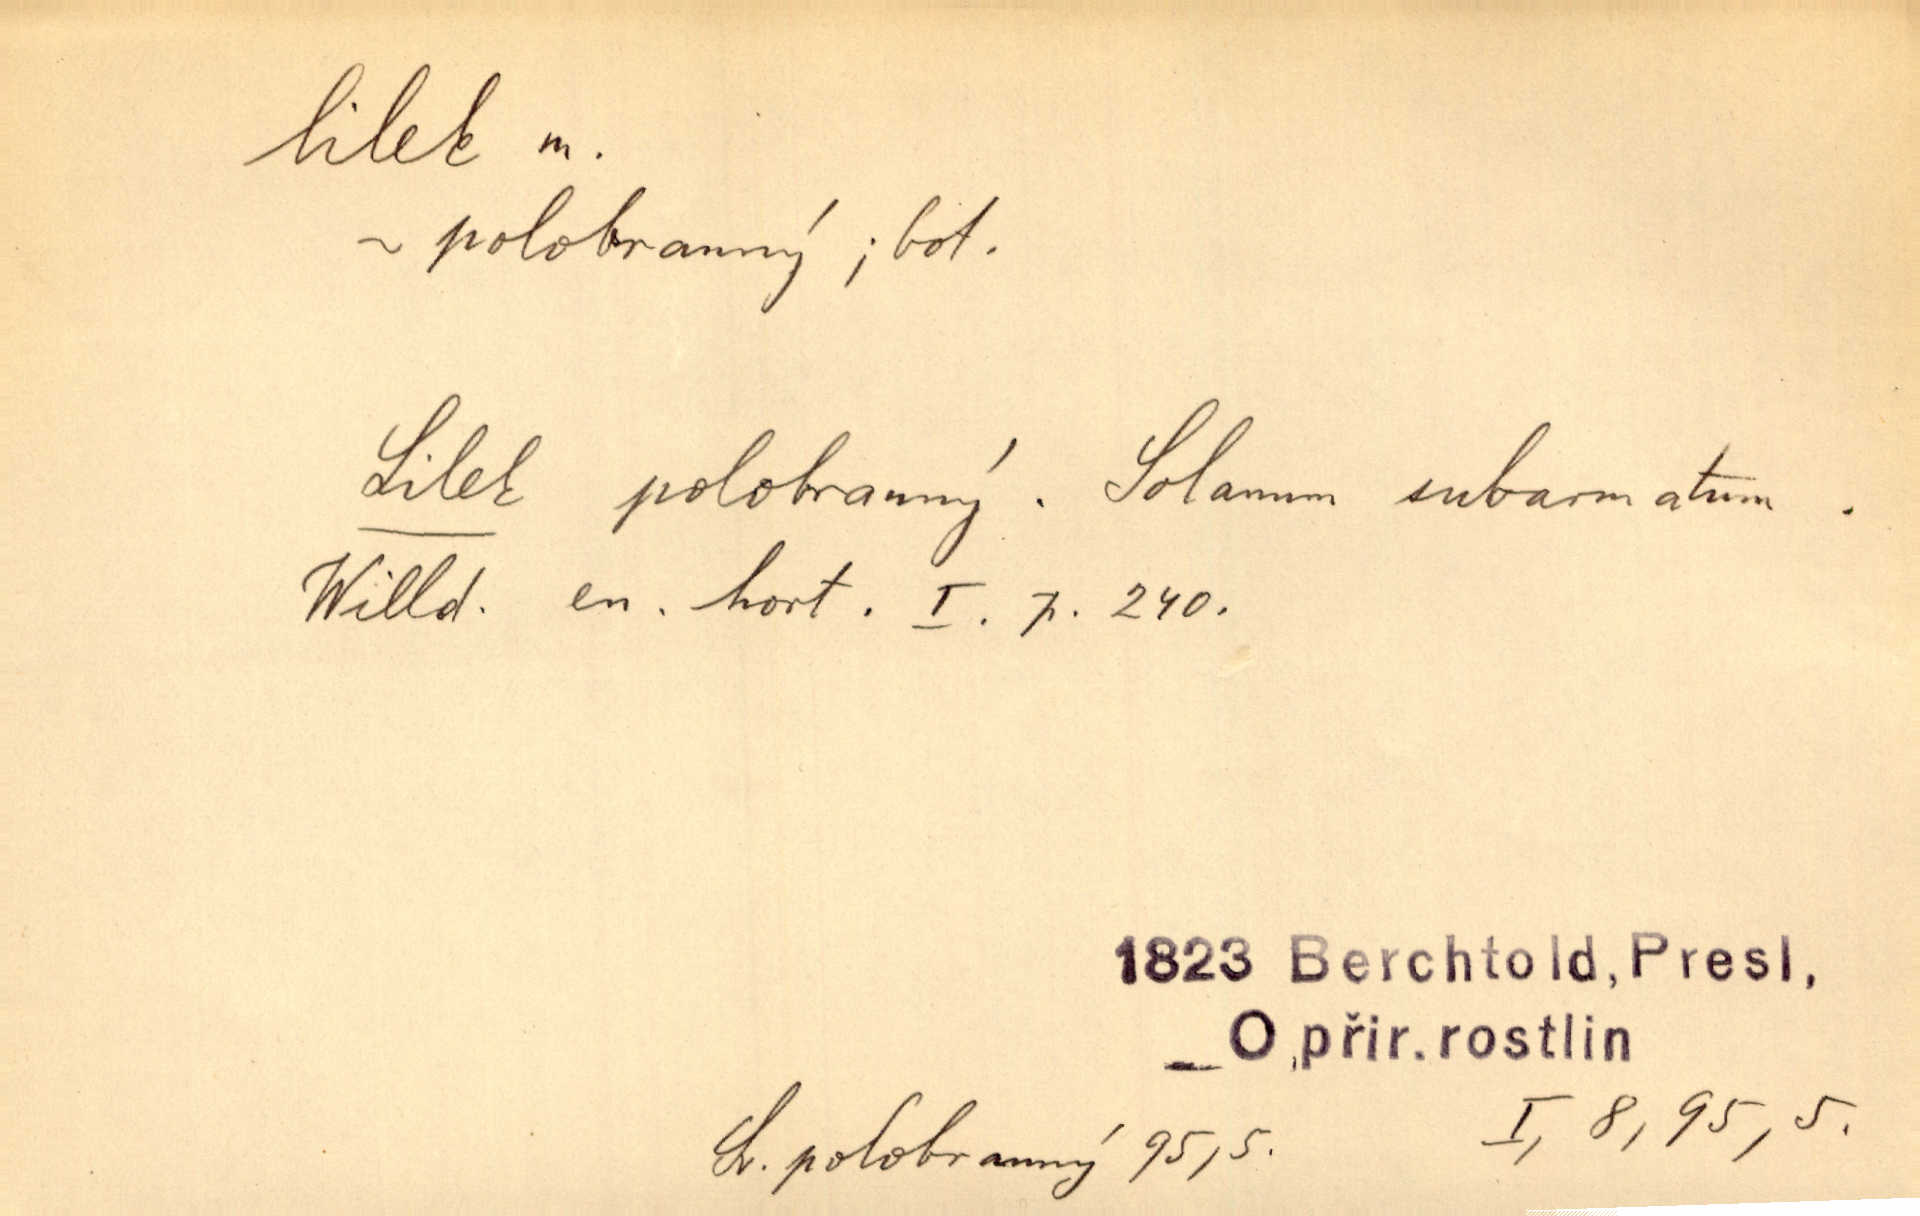 lilek m.
~ polobranný ; bot.
Lilek polobranný. Solanum subarmatum.
Willd. en. hort. I. p. 240.
1823 Berchtold, Presl,
O přir. rostlin
I, 8, 95, 5.
Sv. polobranný 95, 5.